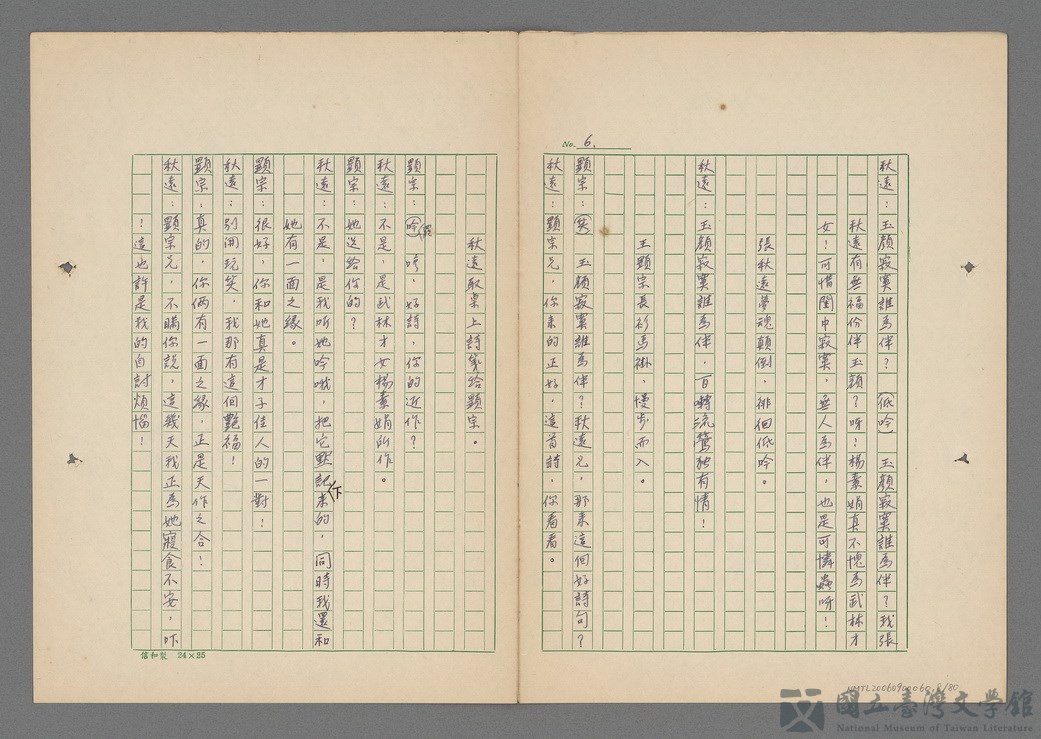 No. 6.
秋遠：玉顏寂寞誰為伴？（低吟）玉顏寂寞誰為伴？我張
秋遠有無福份伴玉顏？呀！楊素娟真不愧為武林才
女！可惜閨中寂寞，無人為伴，也是可憐蟲呀！
張秋遠夢魂顛倒，徘徊低吟。
秋遠：玉顏寂寞誰為伴，百囀流鶯独有情！
王顯宗長衫馬褂，慢步而入。
顯宗：（笑）玉顏寂寞誰為伴？秋遠兄，那来這個好詩句？
秋遠：顯宗兄，你来的正好，這首詩，你看看。
秋遠取桌上詩箋給顯宗。
顯宗：（吟罷）哼，好詩，你的近作？
秋遠：不是，是武林才女楊素娟所作。
顯宗：她送給你的？
秋遠：不是，是我听她吟哦，把它默記下来的，同時我還和
她有一面之緣。
顯宗：很好，你和她真是才子佳人的一對！
秋遠：別開玩笑，我那有這個艷福！
顯宗：真的，你俩有一面之緣，正是天作之合！
秋遠：顯宗兄，不瞞你說，這幾天我正為她寢食不安，吓
！這也許是我的自討煩惱！
信和製 24×25
NMTL20060900060 8/80
國立臺灣文學館
National Museum of Taiwan Literature